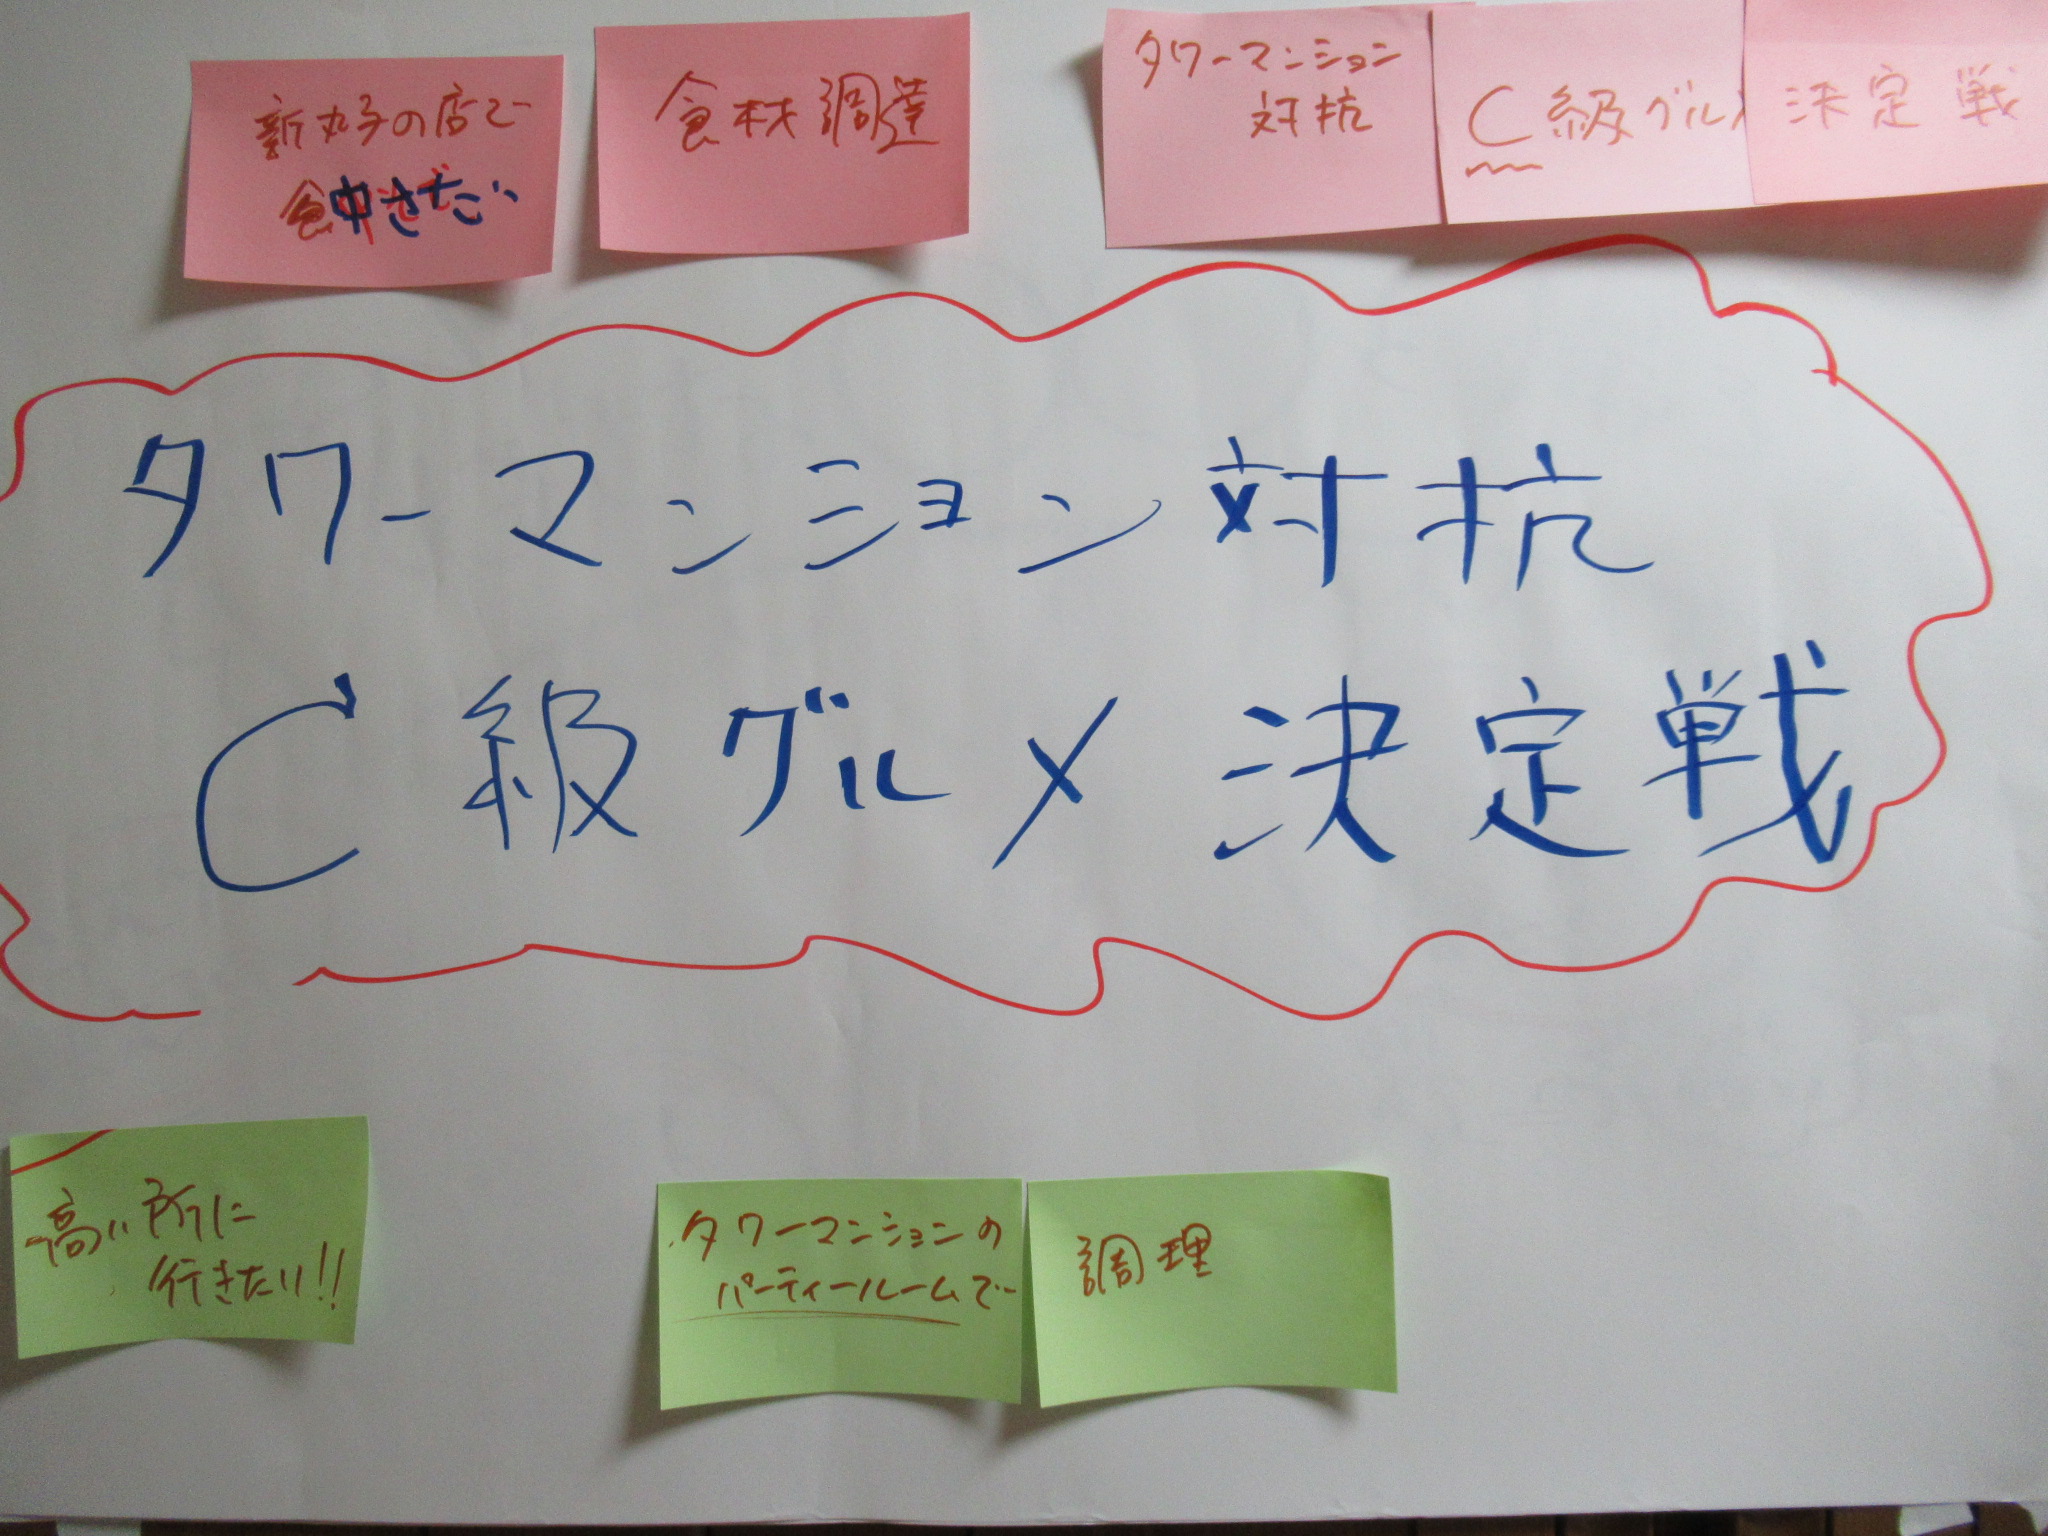 新丸子の店で
食材調達
タワーマンション
対抗
C級グルメ
決定戦
タワーマンション対抗
C級グルメ決定戦
高い所に
行きたい!!
タワーマンションの
パーティールームで
調理